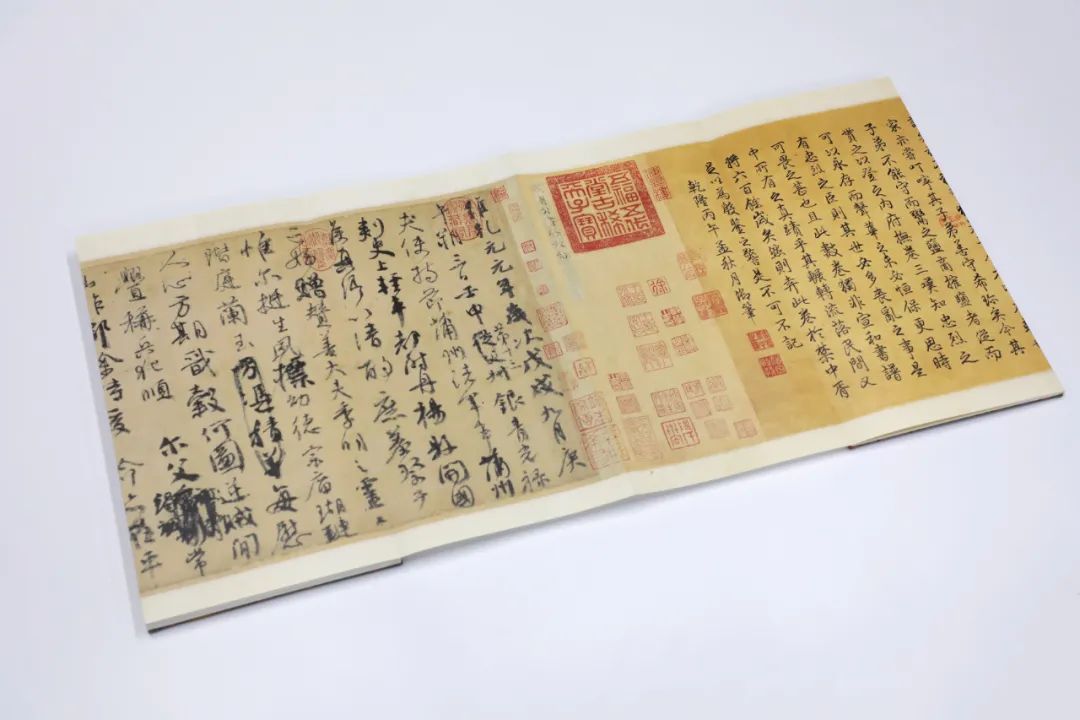 家示者叮嚀其子弟善守希珍矣今其
子弟不能守而鬻之鹽商摧鹽者從而
貲之以登之內府撫卷三嘆知忠烈之
可以永存而聲華之未必恒保更思時
有忠烈之臣則其世必多喪亂之事是
可畏之甚也且此數卷獨非宣和書譜
中所有之真蹟乎其輾轉流落民間又
將六百餘歲矣然則弆此卷於禁中胥
足以為殷鑒之警是不可不記
乾隆丙午孟秋月御筆
五福五代堂古稀天子寶
維乾元元年歲次戊戌九月庚
午朔三日壬申第十三從父銀青光祿
夫使持節蒲州諸軍事蒲州
刺史上輕車都尉丹楊縣開國
侯真卿以清酌庶羞祭于
亡姪贈贊善大夫季明之靈曰
惟爾挺生夙標幼德宗廟瑚璉
階庭蘭玉方憑積善每慰
人心方期戩穀何圖逆賊間
釁稱兵犯順爾父竭誠常
山作郡余時受命亦在平